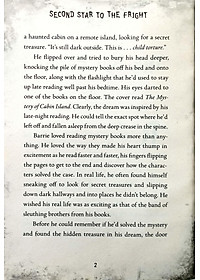 SECOND STAR TO THE FRIGHT
a haunted cabin on a remote island, looking for a secret
treasure. "It's still dark outside. This is . . . child torture."
He flipped over and tried to bury his head deeper,
knocking the pile of mystery books off his bed and onto
the floor, along with the flashlight that he'd used to stay
up late reading well past his bedtime. His eyes darted to
one of the books on the floor. The cover read The Mys-
tery of Cabin Island. Clearly, the dream was inspired by his
late-night reading. He could tell the exact spot where he'd
left off and fallen asleep from the deep crease in the spine.
Barrie loved reading mystery books more than any-
thing. He loved the way they made his heart thump in
excitement as he read faster and faster, his fingers flipping
the pages to get to the end and discover how the charac-
ters solved the case. In real life, he often found himself
sneaking off to look for secret treasures and slipping
down dark hallways and into places he didn't belong. He
wished his real life was as exciting as that of the band of
sleuthing brothers from his books.
Before he could remember if he'd solved the mystery
and found the hidden treasure in his dream, the door
2